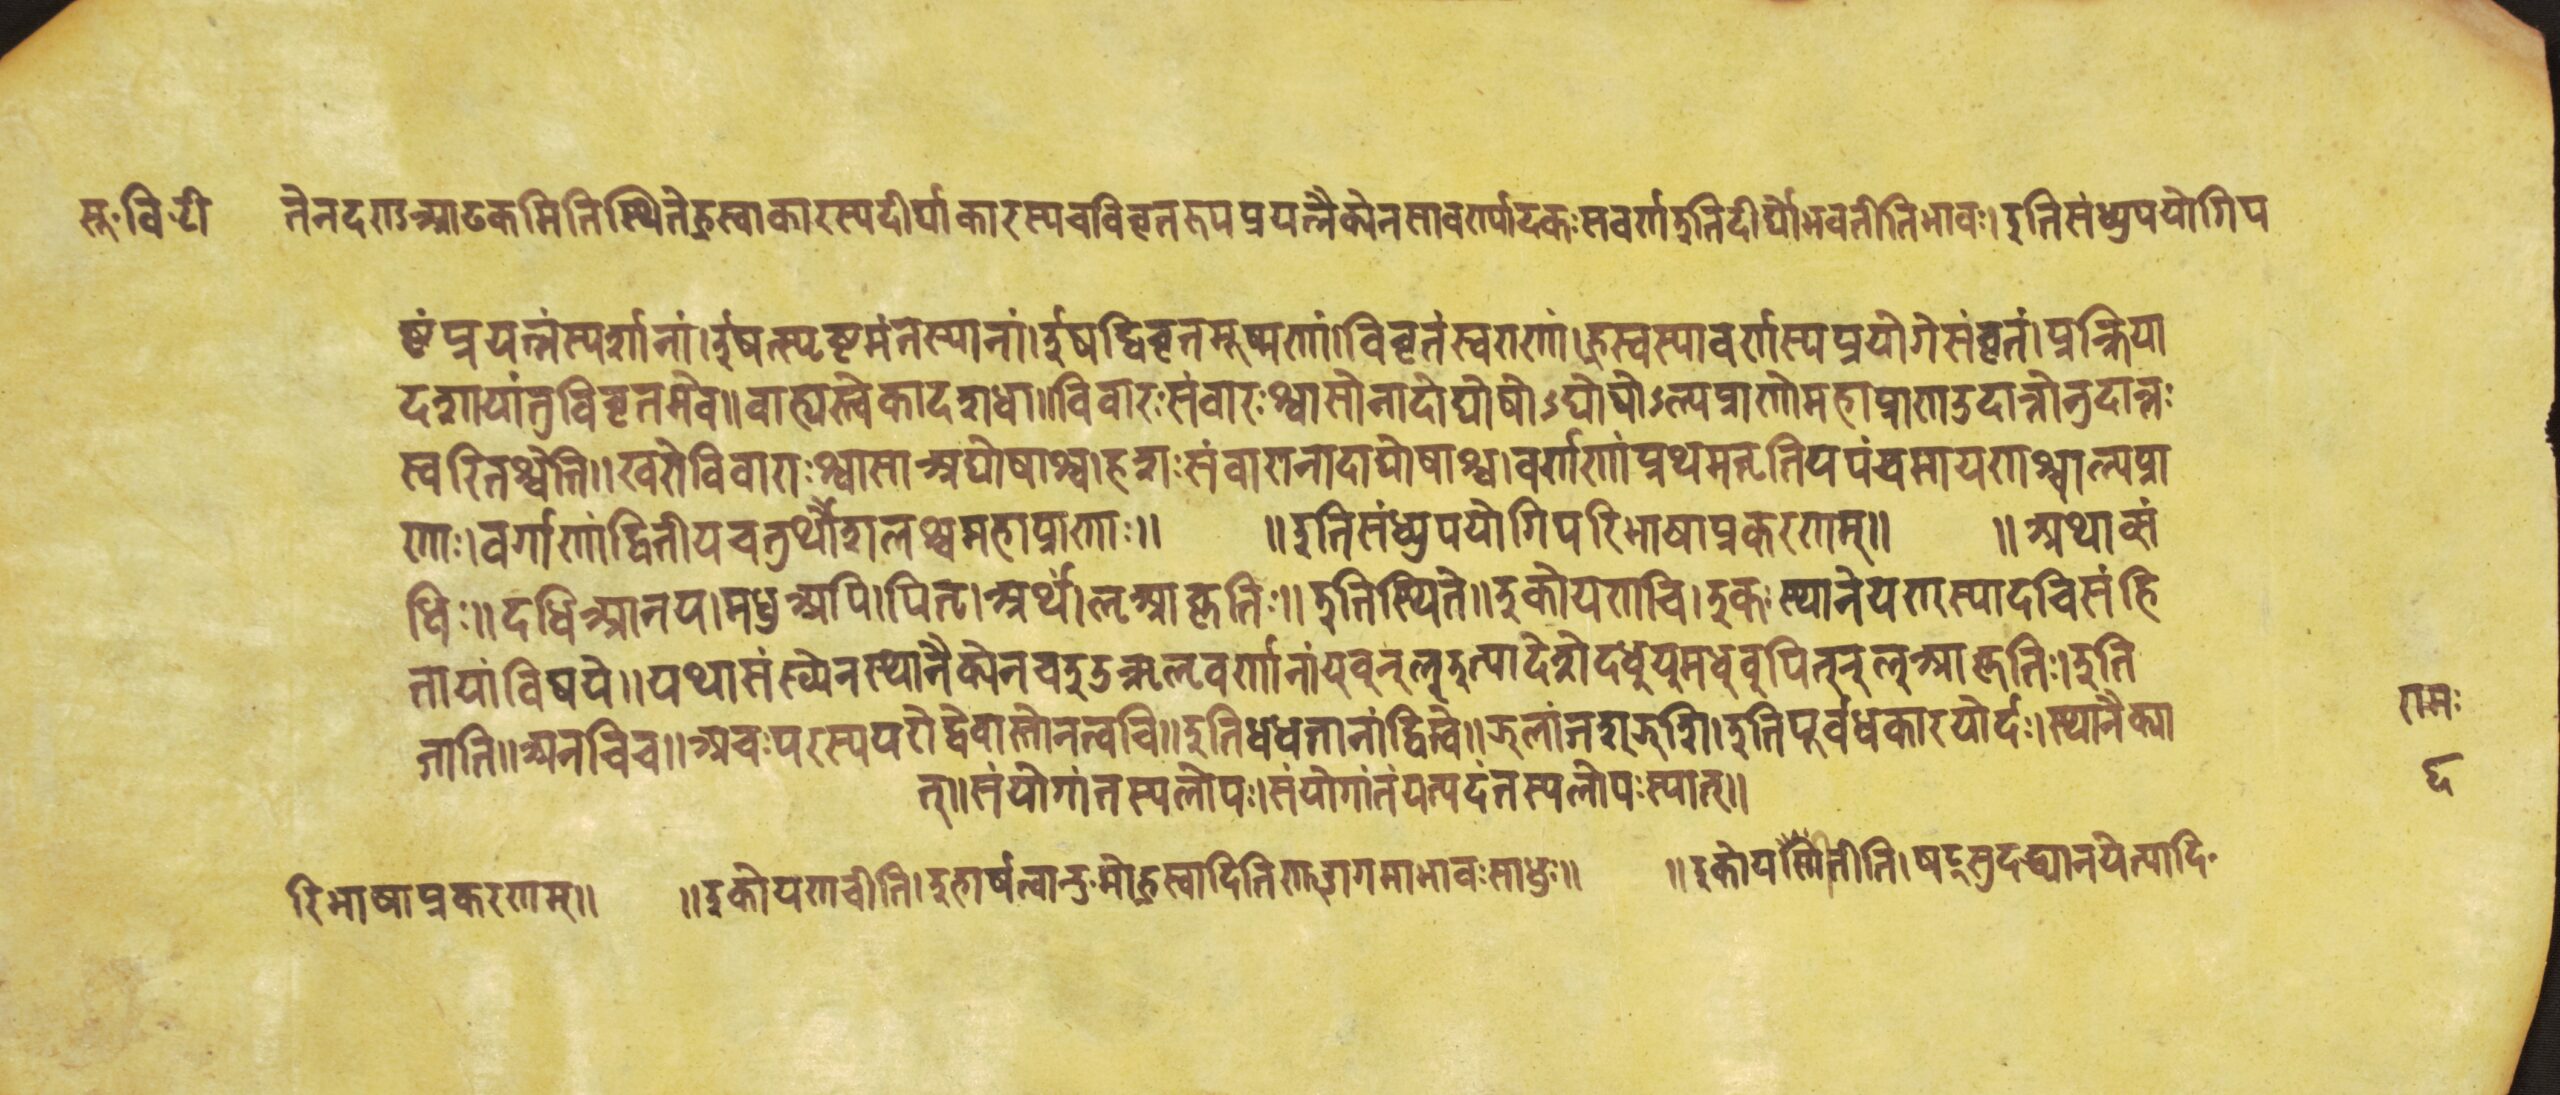 सू॰वि॰टी तेनदण्डआढकमितिस्थितेह्रस्वाकारस्यदीर्घाकारस्यचविवृतरूपप्रयत्नैक्येनसावर्ण्यादकःसवर्णइतिदीर्घोभवतीतिभावः।इतिसंध्युपयोगिप
ष्टंप्रयत्नंस्पर्शानां।ईषत्स्पृष्टमंतस्थानां।ईषद्विवृतमूष्मणां।विवृतंस्वराणां।ह्रस्वस्यावर्णस्यप्रयोगेसंवृतं।प्रक्रिया
दशायांतुविवृतमेव॥बाह्यस्त्वेकादशधा॥विवारःसंवारःश्वासोनादोघोषोऽघोषोऽल्पप्राणोमहाप्राणउदात्तोनुदात्तः
स्वरितश्चेति॥खरोविवाराःश्वासाअघोषाश्च।हशःसंवारानादाघोषाश्च।वर्गाणांप्रथमतृतियपंचमायणश्चाल्पप्रा
णाः।वर्गाणांद्वितीयचतुर्थौशलश्चमहाप्राणाः॥ ॥इतिसंध्युपयोगिपरिभाषाप्रकरणम्॥ ॥अथाच्सं
धिः॥दधिआनय।मधुअपि।पितृ।अर्थं।लृआकृतिः॥इतिस्थिते॥इकोयणचि।इकःस्थानेयणस्यादचिसंहि
तायांविषये॥यथासंख्येनस्थानैक्येनचइउऋलृवर्णानांय्व्र्ल्इत्यादेशेदध्य्मध्व्पित्र्ल्आकृतिः।इति
जाते॥अनचिच॥अचःपरस्ययरोद्वेवास्तोनत्वचि॥इतिधधतानांद्वित्वे॥झलांजश्झशि।इतिपूर्वधकारयोर्दः।स्थानैक्या
त्॥संयोगांतस्यलोपः।संयोगांतंयत्पदंतस्यलोपःस्यात्॥
रामः
६
रिभाषाप्रकरणम्॥ ॥इकोयणचीति।इहार्षत्वान्ङमोह्रस्वादितिणुडागमाभावःसाधुः॥ ॥इकोय